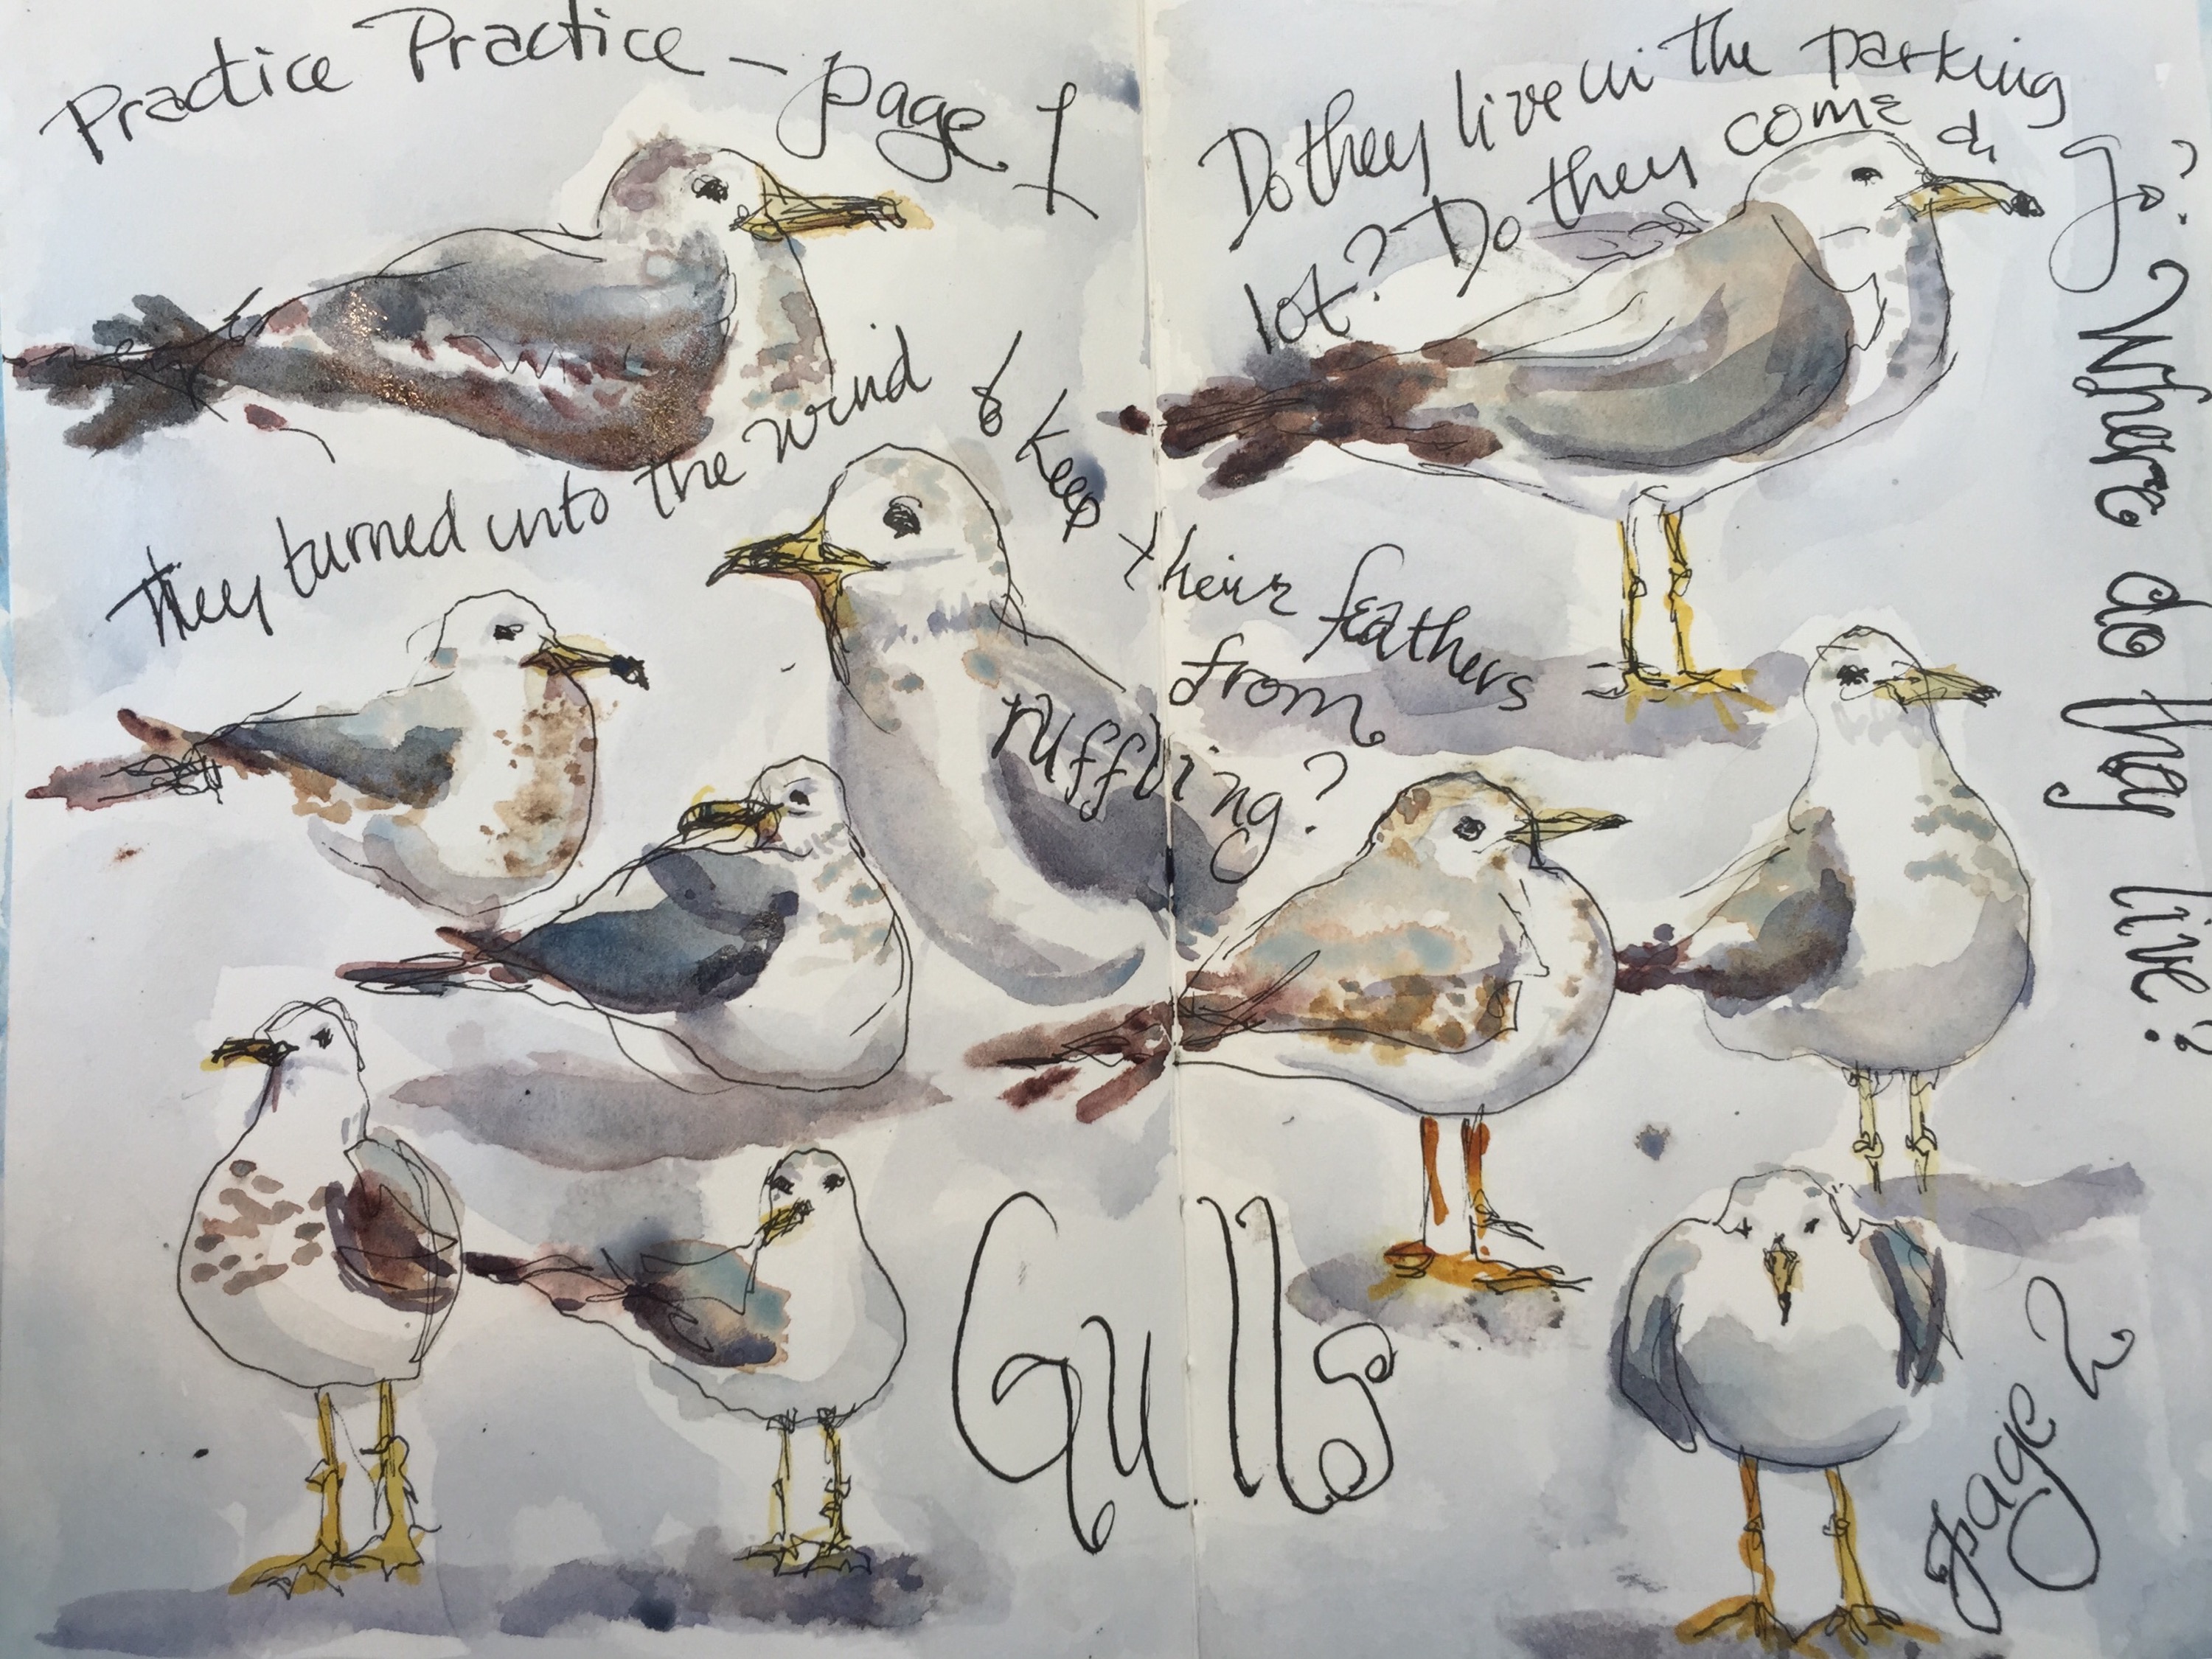 Practice Practice – page 1
They turned into the wind & keep their feathers
from
ruffling?
Do they live in the parking
lot? Do they come &
go?
Where do they live?
Gulls
page 2